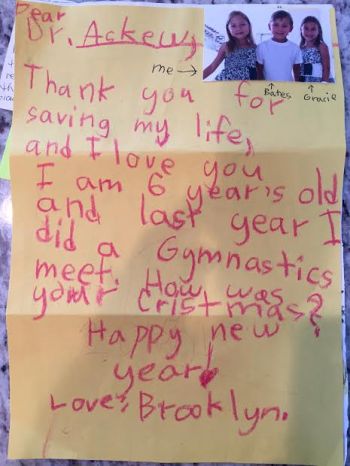 Dear
Dr. Ackew,
me →
Bates
Gracie
Thank you for
saving my life,
and I love you
I am 6 year's old
and last year I
did a Gymnastics
meet. How was
your Cristmas?
Happy new
year!
Love, Brooklyn.